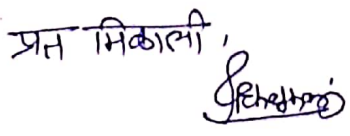 प्रत मिळाली,